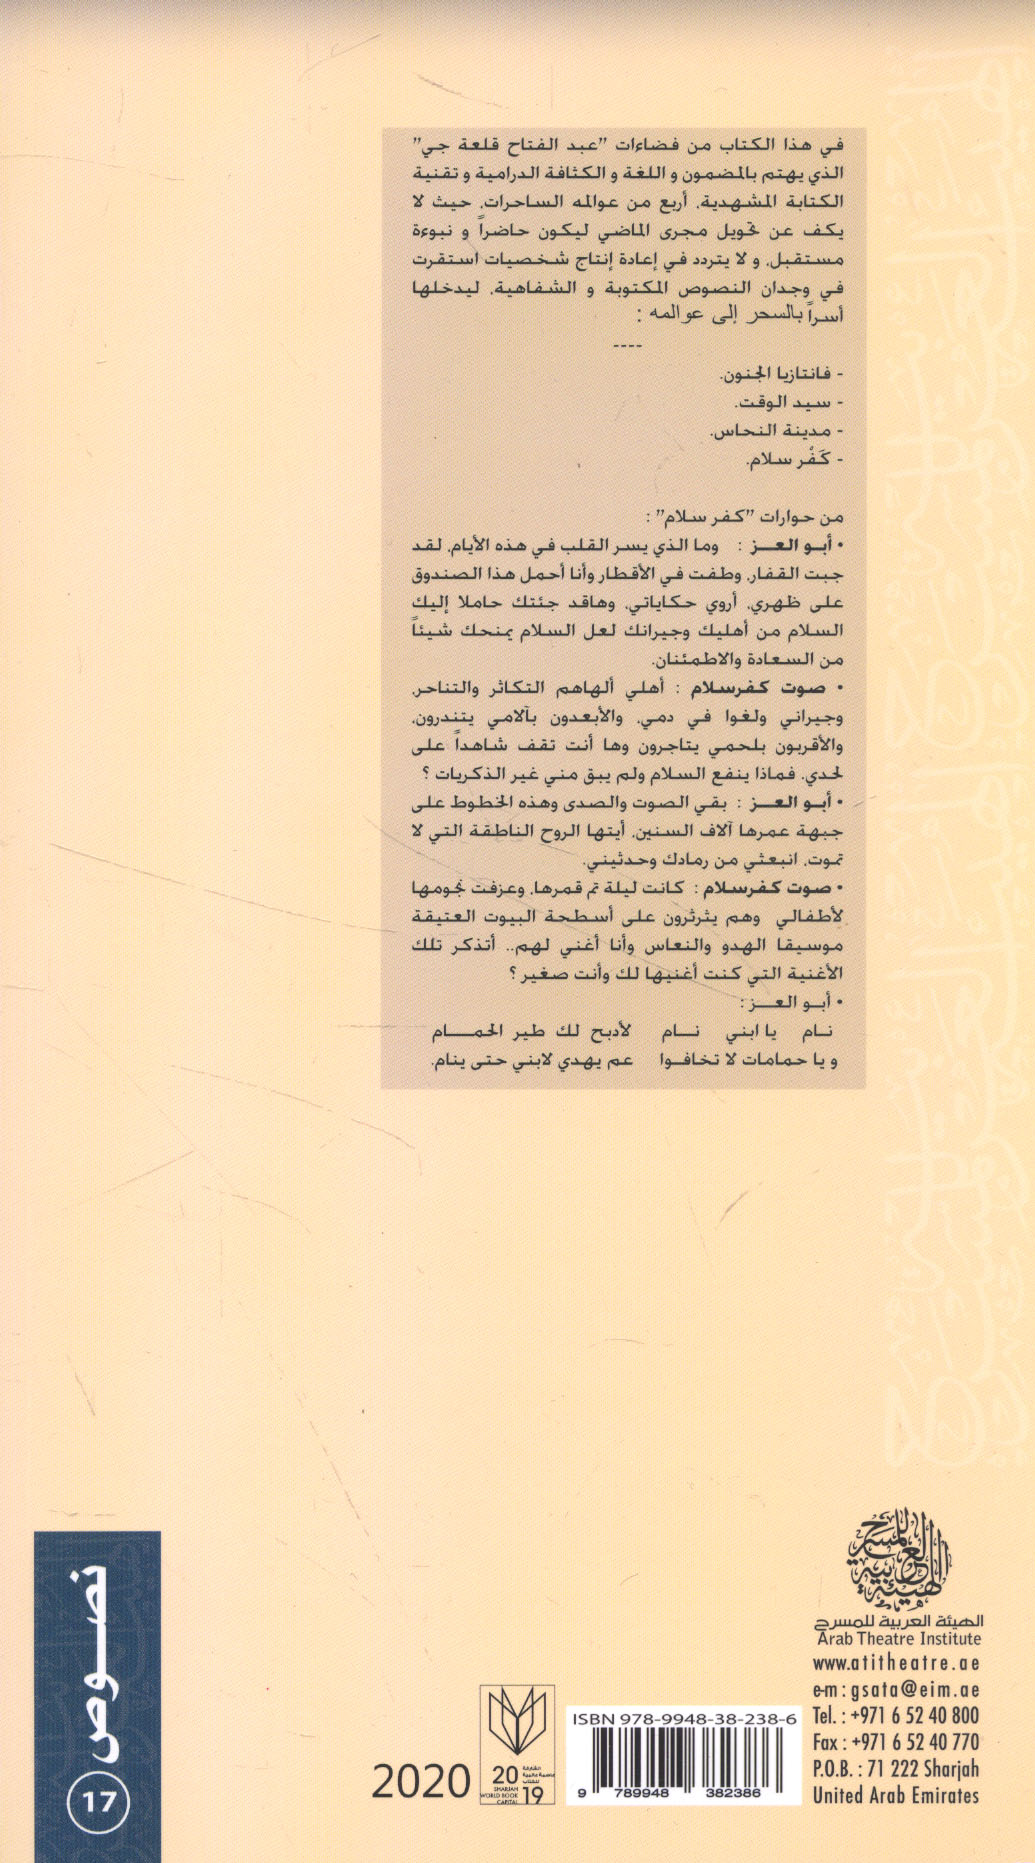 في هذا الكتاب من فضاءات "عبد الفتاح قلعة جي"
الذي يهتم بالمضمون و اللغة و الكثافة الدرامية و تقنية
الكتابة المشهدية، أربع من عوالمه الساحرات، حيث لا
يكف عن تحويل مجرى الماضي ليكون حاضراً و نبوءة
مستقبل، و لا يتردد في إعادة إنتاج شخصيات استقرت
في وجدان النصوص المكتوبة و الشفاهية، ليدخلها
أسراً بالسحر إلى عوالمه :
----
- فانتازيا الجنون.
- سيد الوقت.
- مدينة النحاس.
- كَفْر سلام.
من حوارات "كفر سلام" :
• أبـو العـــز : وما الذي يسر القلب في هذه الأيام، لقد
جبت القفار، وطفت في الأقطار وأنا أحمل هذا الصندوق
على ظهري، أروي حكاياتي، وهاقد جئتك حاملا إليك
السلام من أهليك وجيرانك لعل السلام يمنحك شيئاً
من السعادة والاطمئنان.
• صوت كفرسلام : أهلي ألهاهم التكاثر والتناحر،
وجيراني ولغوا في دمي، والأبعدون بآلامي يتندرون،
والأقربون بلحمي يتاجرون وها أنت تقف شاهداً على
لحدي، فماذا ينفع السلام ولم يبق مني غير الذكريات ؟
• أبـو العـــز : بقي الصوت والصدى وهذه الخطوط على
جبهة عمرها آلاف السنين، أيتها الروح الناطقة التي لا
تموت، انبعثي من رمادك وحدثيني.
• صوت كفرسلام : كانت ليلة تم قمرها، وعزفت نجومها
لأطفالي وهم يثرثرون على أسطحة البيوت العتيقة
موسيقا الهدو والنعاس وأنا أغني لهم.. أتذكر تلك
الأغنية التي كنت أغنيها لك وأنت صغير ؟
• أبـو العـــز :
نـام يا ابني نـــام لأدبح لك طير الحمـــــام
و يا حمامات لا تخافـوا عم يهدي لابني حتى ينام.
الهيئة العربية للمسرح
الهيئة العربية للمسرح
Arab Theatre Institute
www.atitheatre.ae
e-m : gsata@eim.ae
Tel. : +971 6 52 40 800
Fax : +971 6 52 40 770
P.O.B. : 71 222 Sharjah
United Arab Emirates
ISBN 978-9948-38-238-6
9 789948 382386
الشارقة
عاصمة عالمية
للكتاب
2019
SHARJAH
WORLD BOOK
CAPITAL
2020
نصـــوص
17